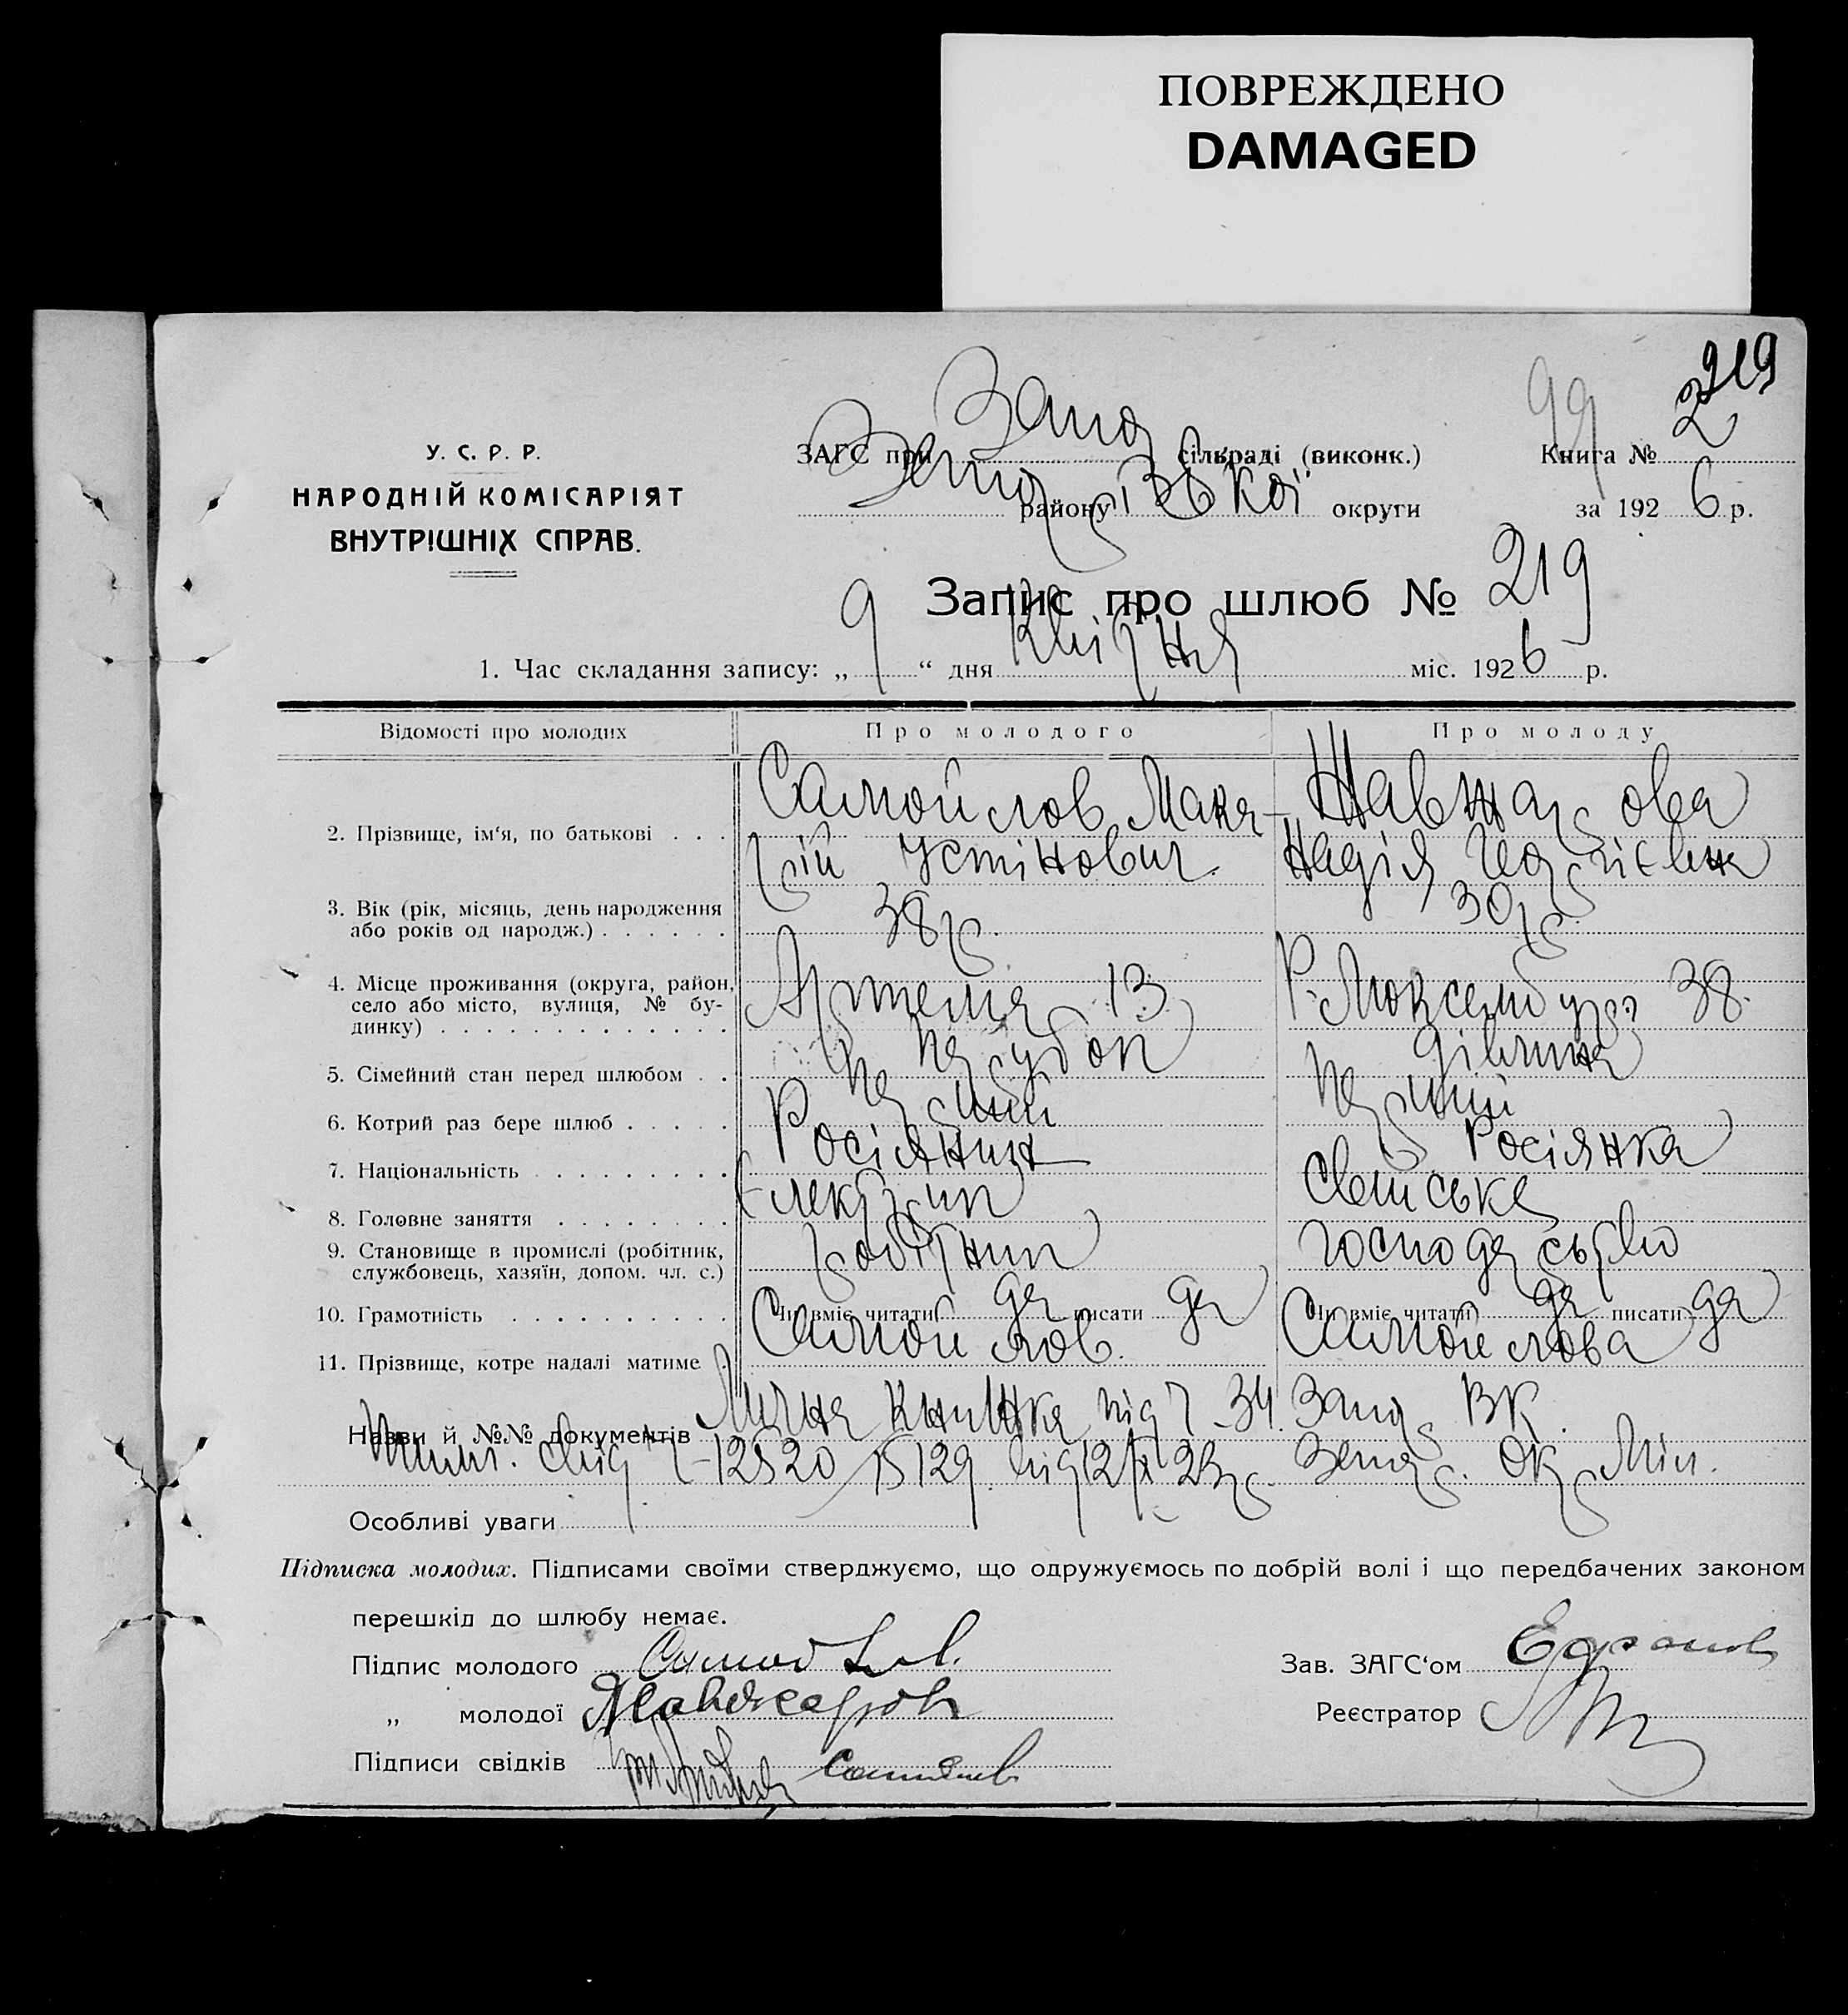 ПОВРЕЖДЕНО
DAMAGED
219
99
2
У. С. Р. Р.
НАРОДНІЙ КОМІСАРІЯТ
ВНУТРІШНІХ СПРАВ.
ЗАГС при Запор сільраді (виконк.)
Книга №
району округи
за 1926 р.
Запис про шлюб № 219
1. Час складання запису: „ 9 “ дня Квітня міс. 1926 р.
Відомості про молодих
Про молодого
Про молоду
2. Прізвище, ім‘я, по батькові . . .
Самойлов Мака-
рій Устінович.
Жавжарова
Надія
3. Вік (рік, місяць, день народження
або років од народж.) . . . . . .
38 р.
30 р.
4. Місце проживання (округа, район,
село або місто, вулиця, № бу-
динку) . . . . . . . . . . . . .
Артема 13
Р. Люксембург 38.
5. Сімейний стан перед шлюбом . .
Парубок
дівчина
6. Котрий раз бере шлюб . . . . .
Первий
Первий
7. Національність . . . . . . . . .
Росіянин
Росіянка
8. Головне заняття . . . . . . . .
Електрик
Свійське
9. Становище в промислі (робітник,
службовець, хазяїн, допом. чл. с.)
робітник
господарство
10. Грамотність . . . . . . . . . .
Чи вміє читати да писати да
Чи вміє читати да писати да
11. Прізвище, котре надалі матиме .
Самойлов.
Самойлова
Назви й №№ документів Лична книжка від 34 Запор ВК.
12520 15129 від Запор. Окр Міл.
Особливі уваги
Підписка молодих. Підписами своїми стверджуємо, що одружуємось по добрій волі і що передбачених законом
перешкід до шлюбу немає.
Підпис молодого
Зав. ЗАГС‘ом
„ молодої Жавжарова
Реєстратор
Підписи свідків